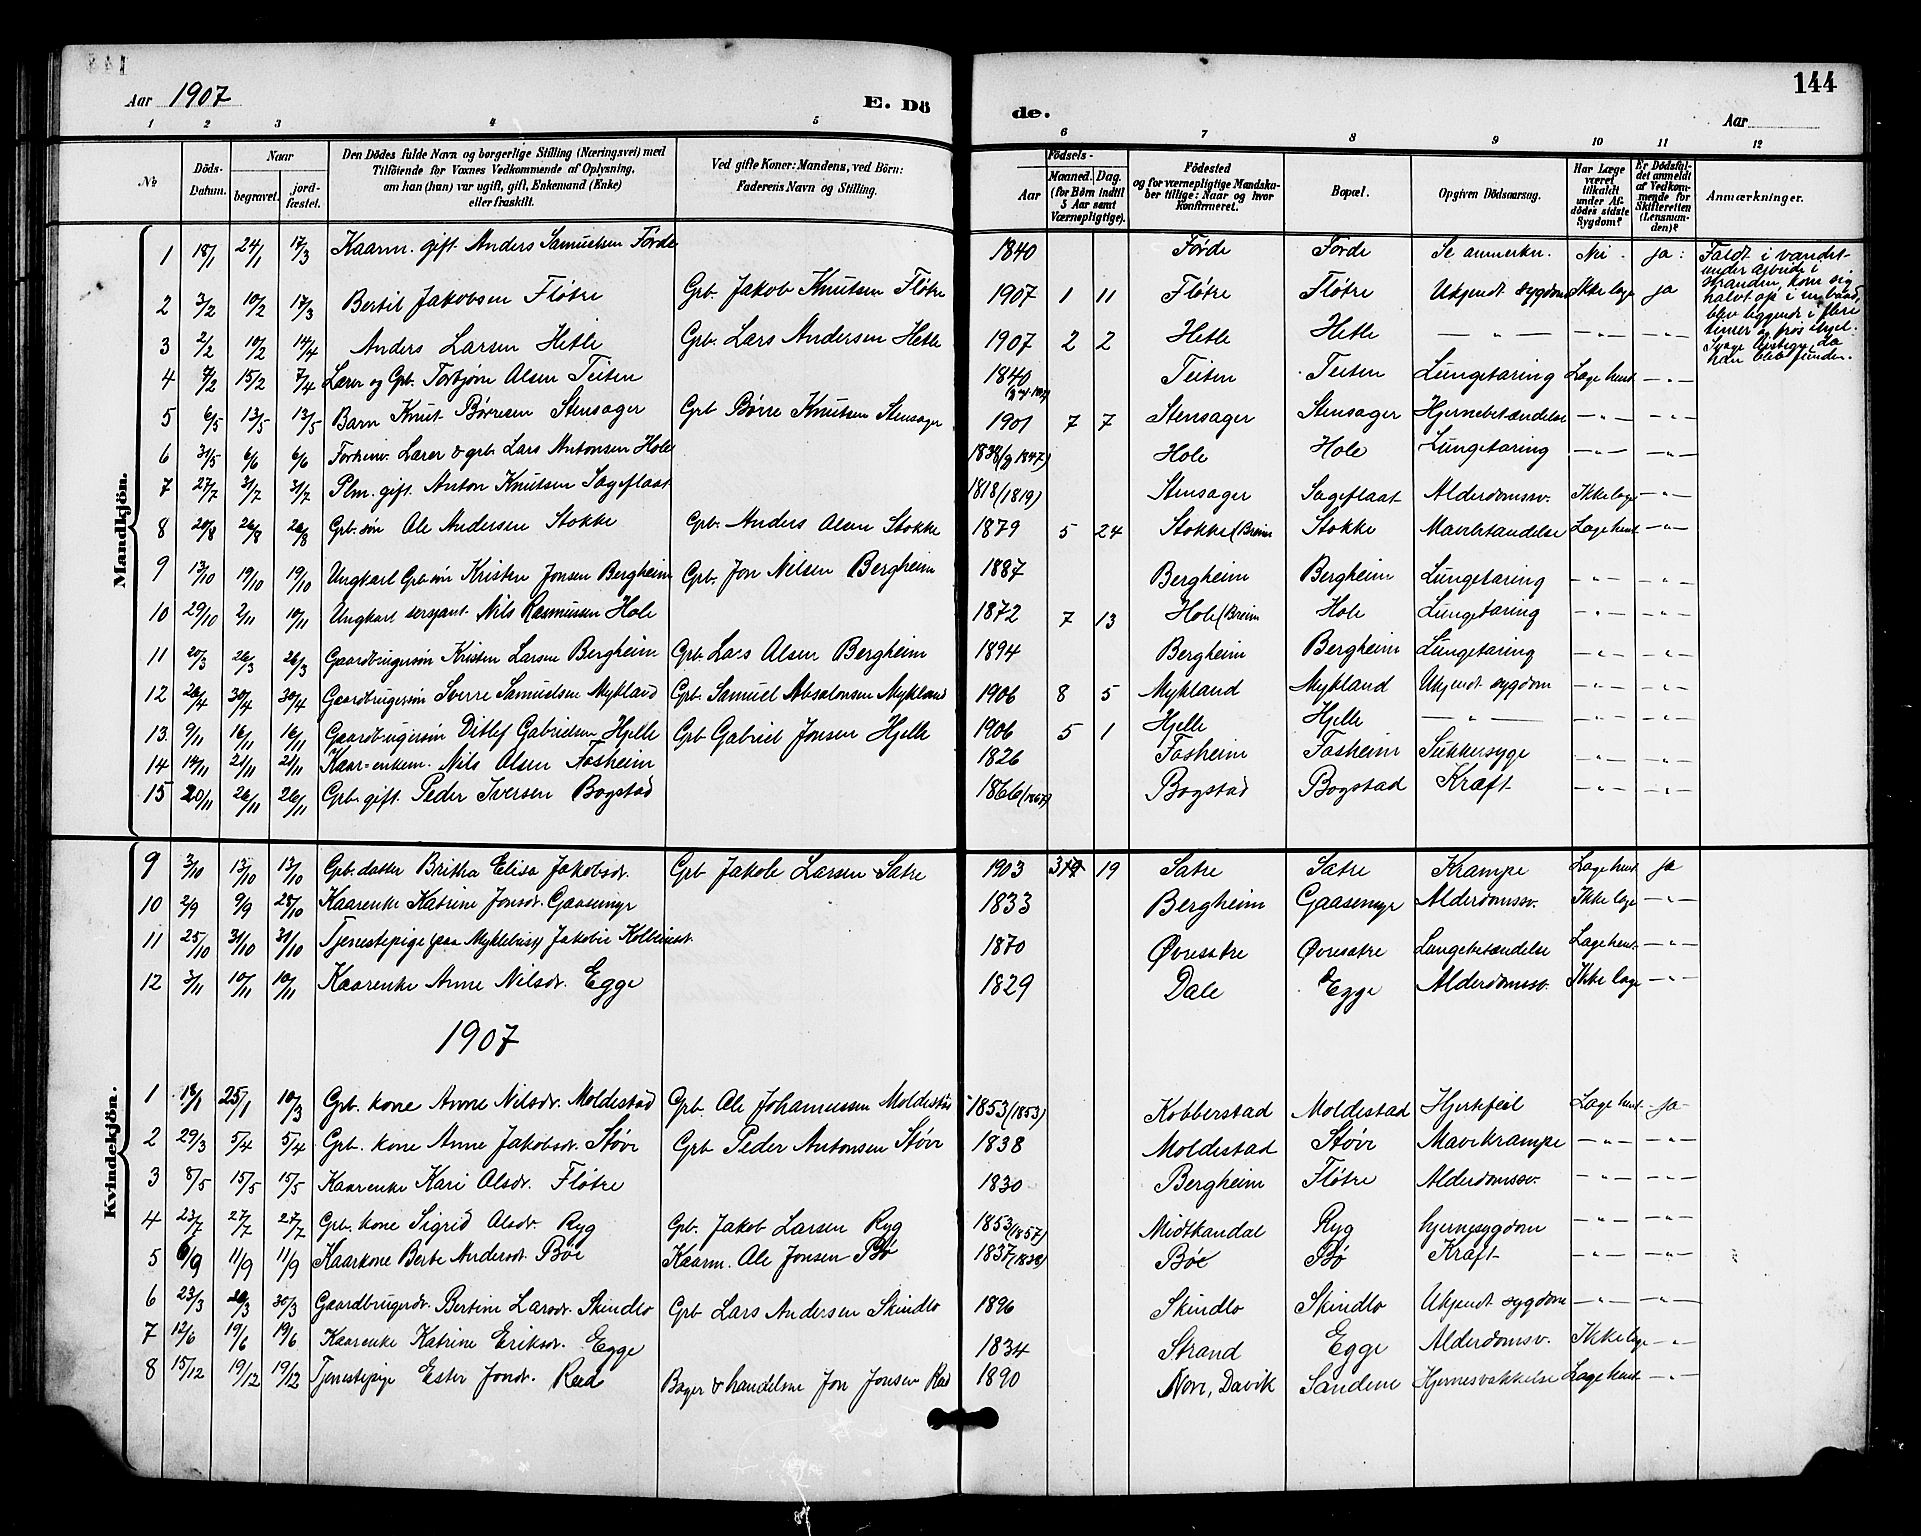 144
Aar 1907
E. Dö
de.
Aar
1 2 3 4 5 6 7 8 9 10 11 12
No
Döds-Datum.
Naar
begravet.
jordfæstet.
Den Dödes fulde Navn og borgerlige Stilling (Næringsvei) med Tilföiende for Voxnes Vedkommende af Oplysning, om han (hun) var ugift, gift, Enkemand (Enke) eller fraskilt.
Ved gifte Koner: Mandens, ved Börn: Faderens Navn og Stilling.
Födsels-
Aar
Maaned. Dag.
(for Börn indtil 5 Aar samt Værnepligtige).
Födested og for værnepligtige Mandskaber tillige: Naar og hvor konfirmeret.
Bopæl.
Opgiven Dödsaarsag.
Har Læge været tilkaldt under Afdödes sidste Sygdom?
Er Dödsfaldet anmeldt af Vedkommende for Skifteretten (Lensmanden)?
Anmærkninger.
Mandkjön.
1 18/1 24/1 17/3 Kaarm. gift. Anders Samuelsen Förde 1840 Förde Förde Se anmerkn. Nei. ja:
Faldt i vandet under arbeide i stranden, kom sig halvt op i en baad, blev liggende i flere timer og frös ihjel. da han blev funden.
2 3/2 10/2 17/3 Bertil Jakobsen Flötre Grb. Jakob Knutsen Flötre 1907 1 11 Flötre Flötre Ukjendt sygdom Ikke læge ja
3 2/2 10/2 14/4 Anders Larsen Hetle Grb. Lars Andersen Hetle 1907 2 2 Hetle Hetle — " — — " — — " —
4 7/2 15/2 7/4 Lærer og Grb. Torbjørn Olsen Teiten 1840 Teiten Teiten Lungetæring Læge hent — " —
5 6/5 13/5 13/5 Barn Knut Børresen Stensager Grb Børre Knutsen Stensager 1901 7 7 Stensager Stensager Hjernebetændelse — " — — " —
6 31/5 6/6 6/6 Forhenv. Lærer & grb. Lars Antonsen Hole 1838 (g 1847) Hole Hole Lungetæring — " — — " —
7 27/7 31/7 31/7 Plm. gift. Anton Knutsen Sageflaat 1818 (1819) Stensager Sageflaat Alderdomssv. Ikke læge — " —
8 20/8 26/8 26/8 Grb. søn Ole Andersen Stokke Grb. Anders Olsen Stokke 1879 5 24 Stokke (Breim Stokke Mavebetændelse Læge hent — " —
9 13/10 19/10 19/10 Ungkarl Grb. søn Kristen Jonsen Bergheim Grb. Jon Nilsen Bergheim 1887 Bergheim Bergheim Lungetæring — " — — " —
10 29/10 2/11 10/11 Ungkarl sersjant. Nils Rasmussen Hole 1872 7 13 Hole (Breim Hole Lungetæring — " — — " —
11 20/3 26/3 26/3 Gaardbrugersøn Kristen Larsen Bergheim Grb Lars Olsen Bergheim 1894 Bergheim Bergheim Lungetæring — " — — " —
12 26/4 30/4 30/4 Gaardbrugersøn Sverre Samuelsen Mykland Grb. Samuel Absalonsen Mykland 1906 8 5 Mykland Mykland Ukjendt sygdom — " — — " —
13. 9/11 16/11 16/11 Gaardbrugersøn Ditlef Gabrielsen Hjelle Grb Gabriel Jonsen Hjelle 1906 5 1 Hjelle Hjelle — " — — " — — " —
14 14/11 21/11 21/11 Kaar-enkem. Nils Olsen Fosheim 1826 Fosheim Fosheim Sukkersyge — " — — " —
15 20/11 26/11 26/11 Grb. gift. Peder Iversen Bogstad 1866 (1867) Bogstad Bogstad Kræft — " — — " —
Kvindekjön.
9 3/10 13/10 13/10 Grb. datter Britha Elisa Jakobsdr. Grb Jakob Larsen Sætre 1903 19 Sætre Sætre Krampe Læge hent ja
10 2/9 9/9 28/10 Kaarenke Katrine Jonsdr. Gaasemyr 1833 Bergheim Gaasemyr Alderdomssv. Ikke læge — " —
11 25/10 31/10 31/10 Tjenestepige (paa Myklebust) Jakobie 1870 Øvresætre Øvresætre Lungebetændelse Læge hent — " —
12 3/11 10/11 10/11 Kaarenke Anne Nilsdr. Egge 1829 Dale Egge Alderdomssv. Ikke læge — " —
1907
1 18/1 25/1 10/3 Grb. kone Anne Nilsdr. Moldestad Grb. Ole Johannessen Moldestad 1853 (1853) Kobberstad Moldestad Hjertefeil Læge hent ja
2 29/3 5/4 5/4 Grb. kone Anne Jakobsdr. Støve Grb Peder Antonsen Støve 1838 Moldestad Støve Mavekrampe — " — — " —
3 8/5 15/5 15/5 Kaarenke Kari Olsdr. Flötre 1830 Bergheim Flötre Alderdomssv. — " — — " —
4 23/7 27/7 27/7 Grb. kone Sigrid Olsdr. Ryg Grb. Jakob Larsen Ryg 1853 (1857) Midtkandal Ryg hjernesygdom — " — — " —
5 6/9 11/9 11/9 Kaarkone Berte Andersdr. Böe Kaarm. Ole Jonsen Bö 1837 (1838) Böe Bö Kræft — " — — " —
6 23/3 30/3 Gaardbrugerdr. Bertine Larsdr. Skindlo Grb Lars Andersen Skindlo 1896 Skindlo Skindlo Ukjendt sygdom — " — — " —
7 12/6 19/6 19/6 Kaarenke Katrine Eriksdr. Egge 1834 Strand Egge Alderdomssv. Ikke læge — " —
8 15/12 19/12 19/12 Tjenestepige Ester Jonsdr. Rad Bager & handelsm Jon Jonsen Rad 1890 Nore, Davik Sandene Læge hent — " —